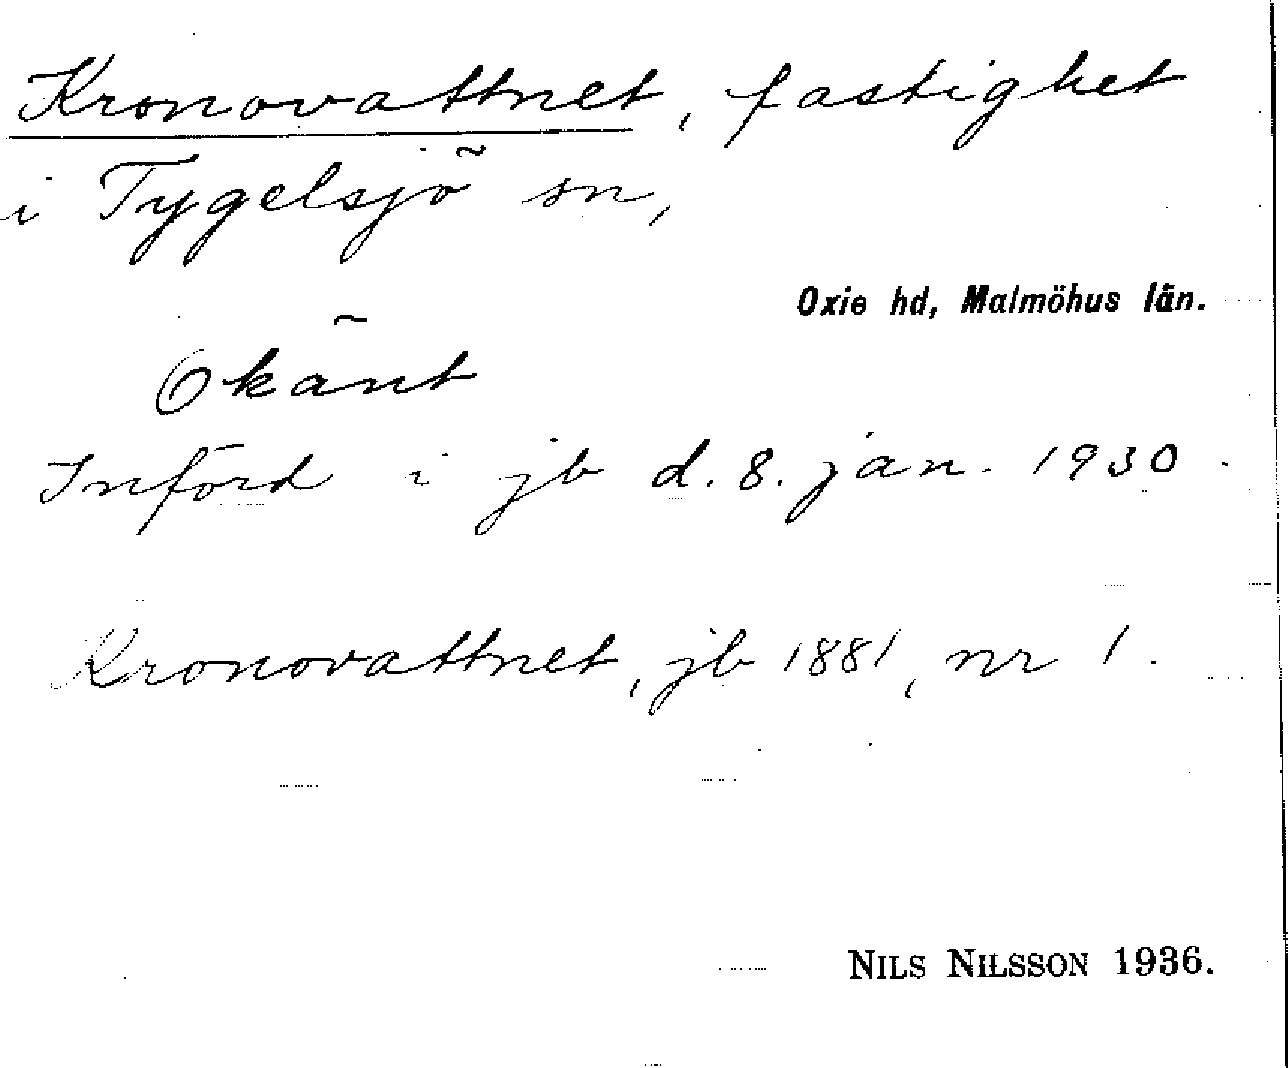 Kronovattnet, fastighet
i Tygelsjö sn,
Oxie hd, Malmöhus län.
Okänt
Införd i jb d. 8. jan. 1930.
Kronovattnet, jb 1881, nr 1.
NILS NILSSON 1936.